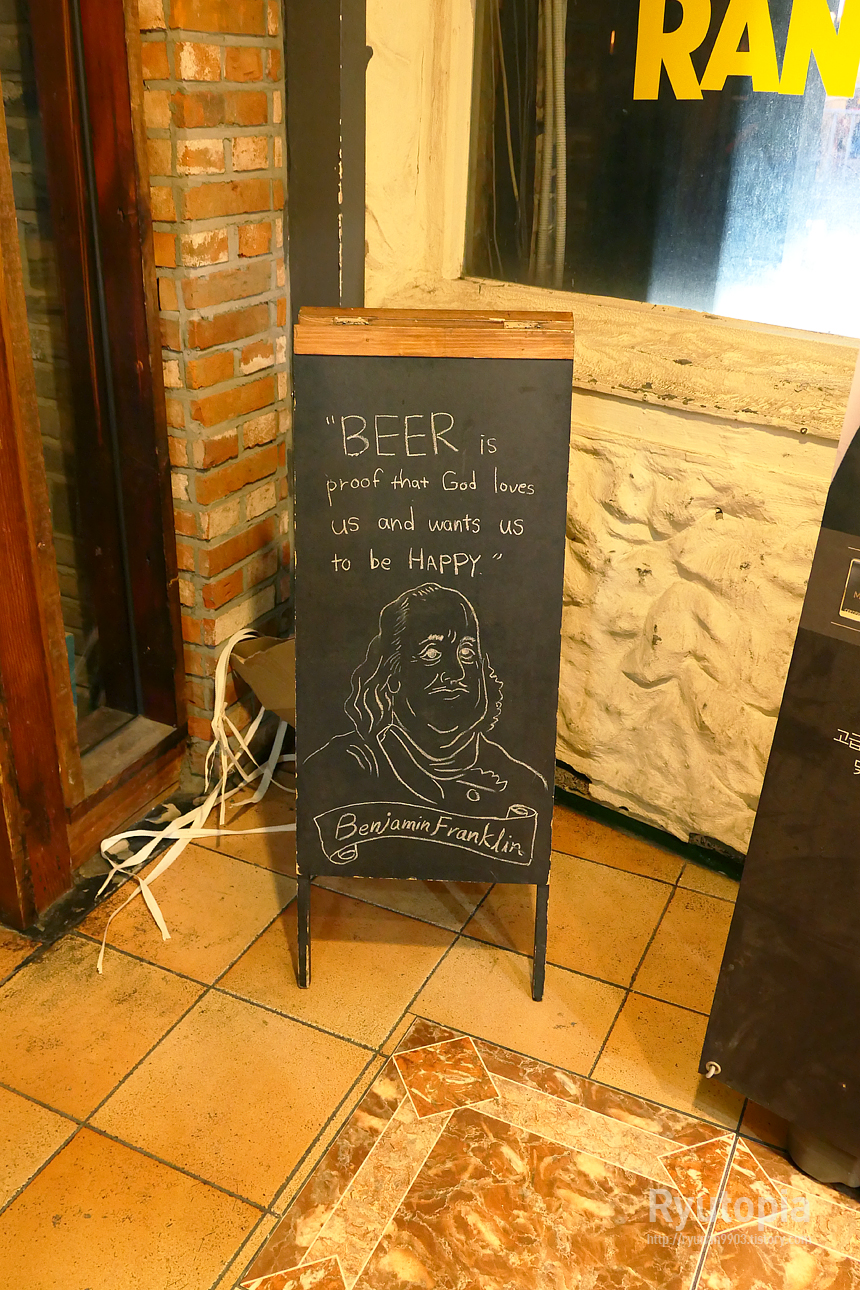 RAN
"BEER is
proof that God loves
us and wants us
to be HAPPY."
Benjamin Franklin
고급
Ryutopia